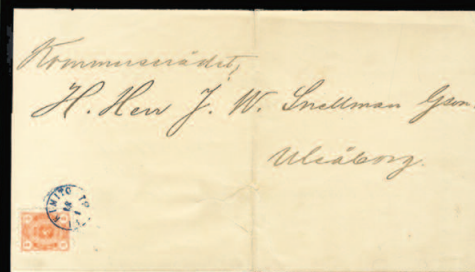 Kommerserådet,
H. Herr J. W. Snellman Gson
Uleåborg.
KIMITO